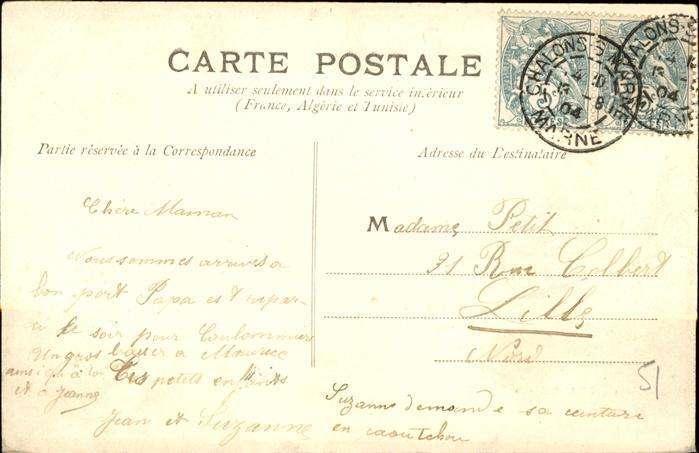 CARTE POSTALE
A utiliser seulement dans le service intérieur
(France, Algérie et Tunisie)
CHALONS-S-MARNE
04
MARNE
CHALONS-S
04
Partie réservée à la Correspondance
Adresse du Destinataire
Chère Maman
Nous sommes arrivés a
bon port Papa est repar
ti le soir pour Coulommiers
Un gros baiser a Maurice
ainsi qu'à toi
et à Jeanne
Tes petits enfants
Jean et Suzanne
Madame Petit
31 Rue Colbert
Lille
Nord
Suzanne demande sa ceinture
en caoutchou
51